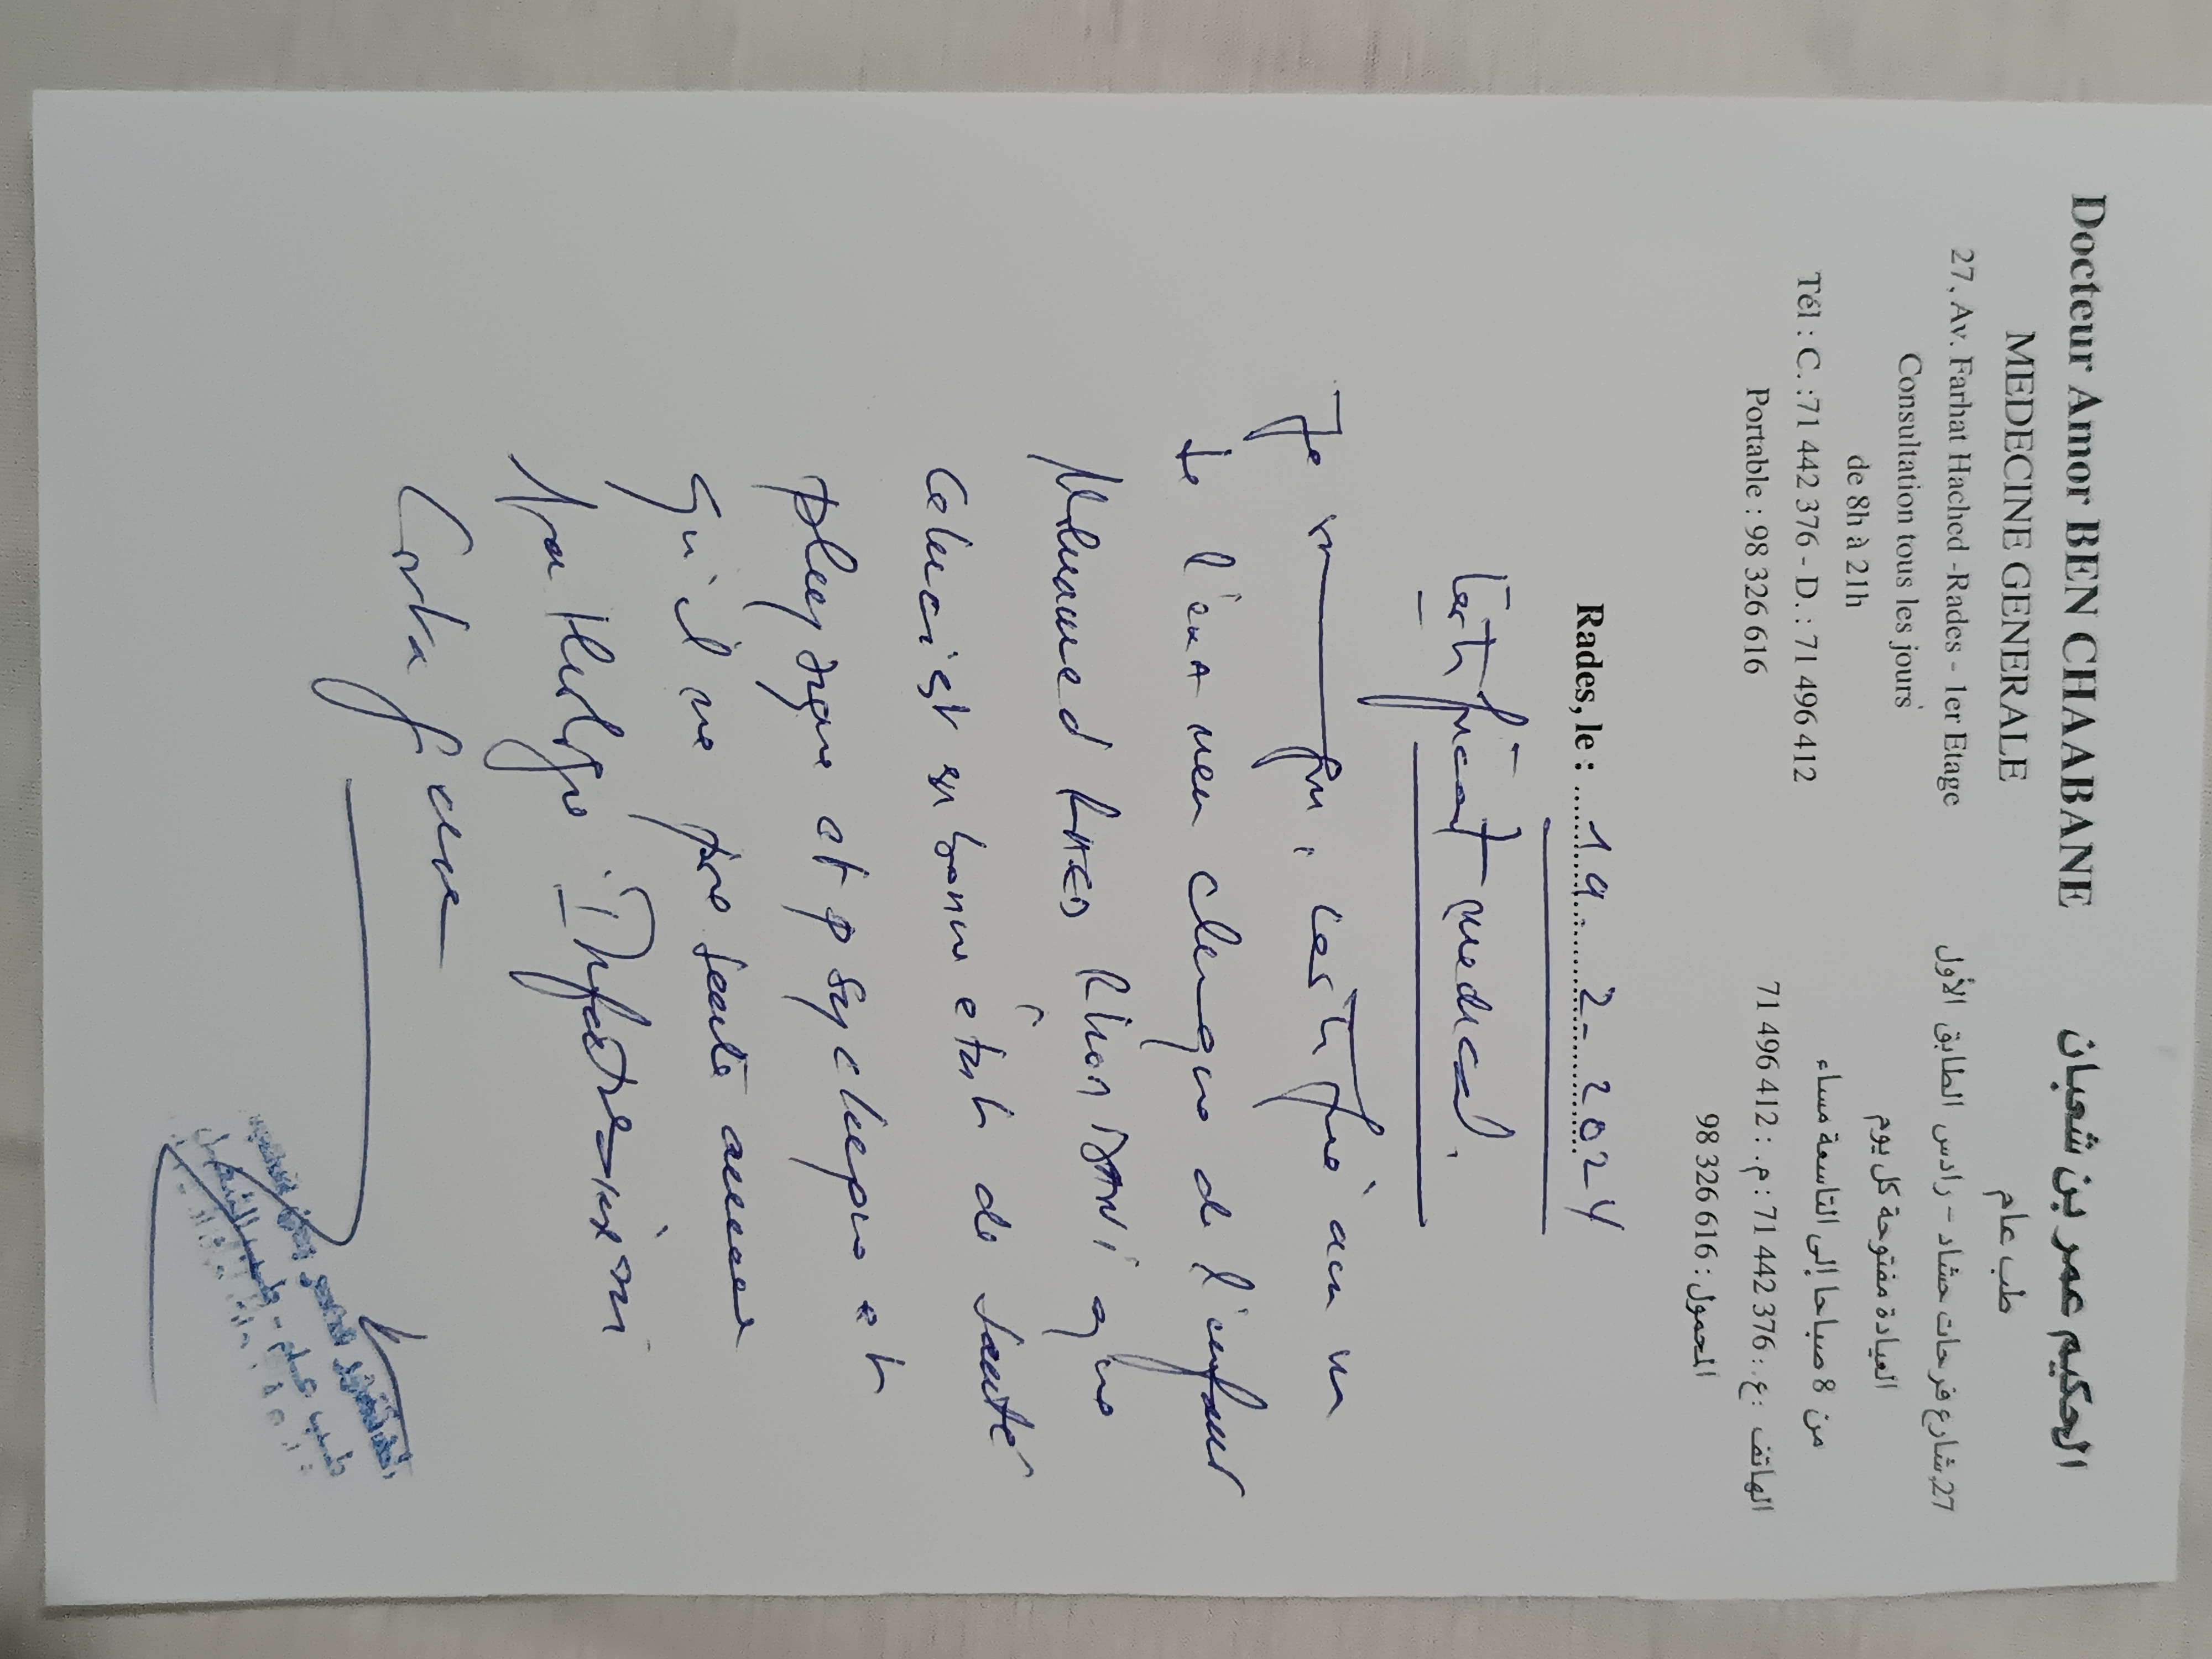 Docteur Amor BEN CHAABANE
MEDECINE GENERALE
27, Av. Farhat Hached -Rades - 1er Etage
Consultation tous les jours
de 8h à 21h
Tél : C. :71 442 376 - D. : 71 496 412
Portable : 98 326 616
الحكيم عمر بن شعبان
طب عام
27,شارع فرحات حشاد - رادس الطابق الأول
العيادة مفتوحة كل يوم
من 8 صباحا إلى التاسعة مساء
الهاتف : ع. : 71 442 376 : م. : 71 496 412
المحمول : 98 326 616
Rades, le : 19. 2- 2024
Certificat médical.
Je certifie
l'examen clinique de l'enfant
Mohamed que
est en bonne état de santé
physique et psychique et
qu'il ne présente aucune
contagieuse